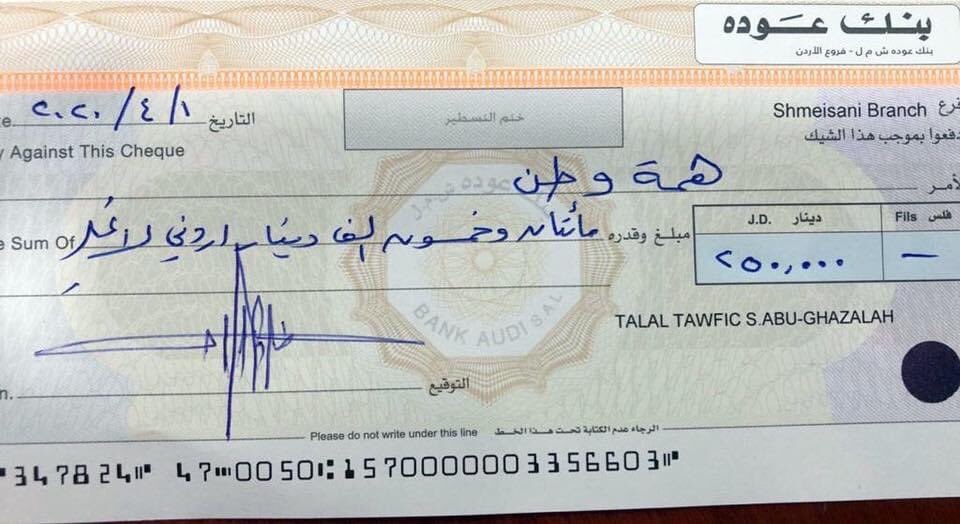 بنك عوده
بنك عوده ش م ل - فروع الأردن
فرع Shmeisani Branch
ختم التسطير
التاريخ ٢٠٢٠/٤/١
دفعوا بموجب هذا الشيك
y Against This Cheque
لأمر همة وطن
e Sum Of مبلغ وقدره مأئتان وخمسون الف دينار اردني لا غير
دينار J.D. فلس Fils
٢٥٠,٠٠٠ —
BANK AUDI S.A.L
TALAL TAWFIC S.ABU-GHAZALAH
n. التوقيع
Please do not write under this line الرجاء عدم الكتابة تحت هذا الخط
⑈347824⑈ 47⑉0050⑆1570000003356603⑈